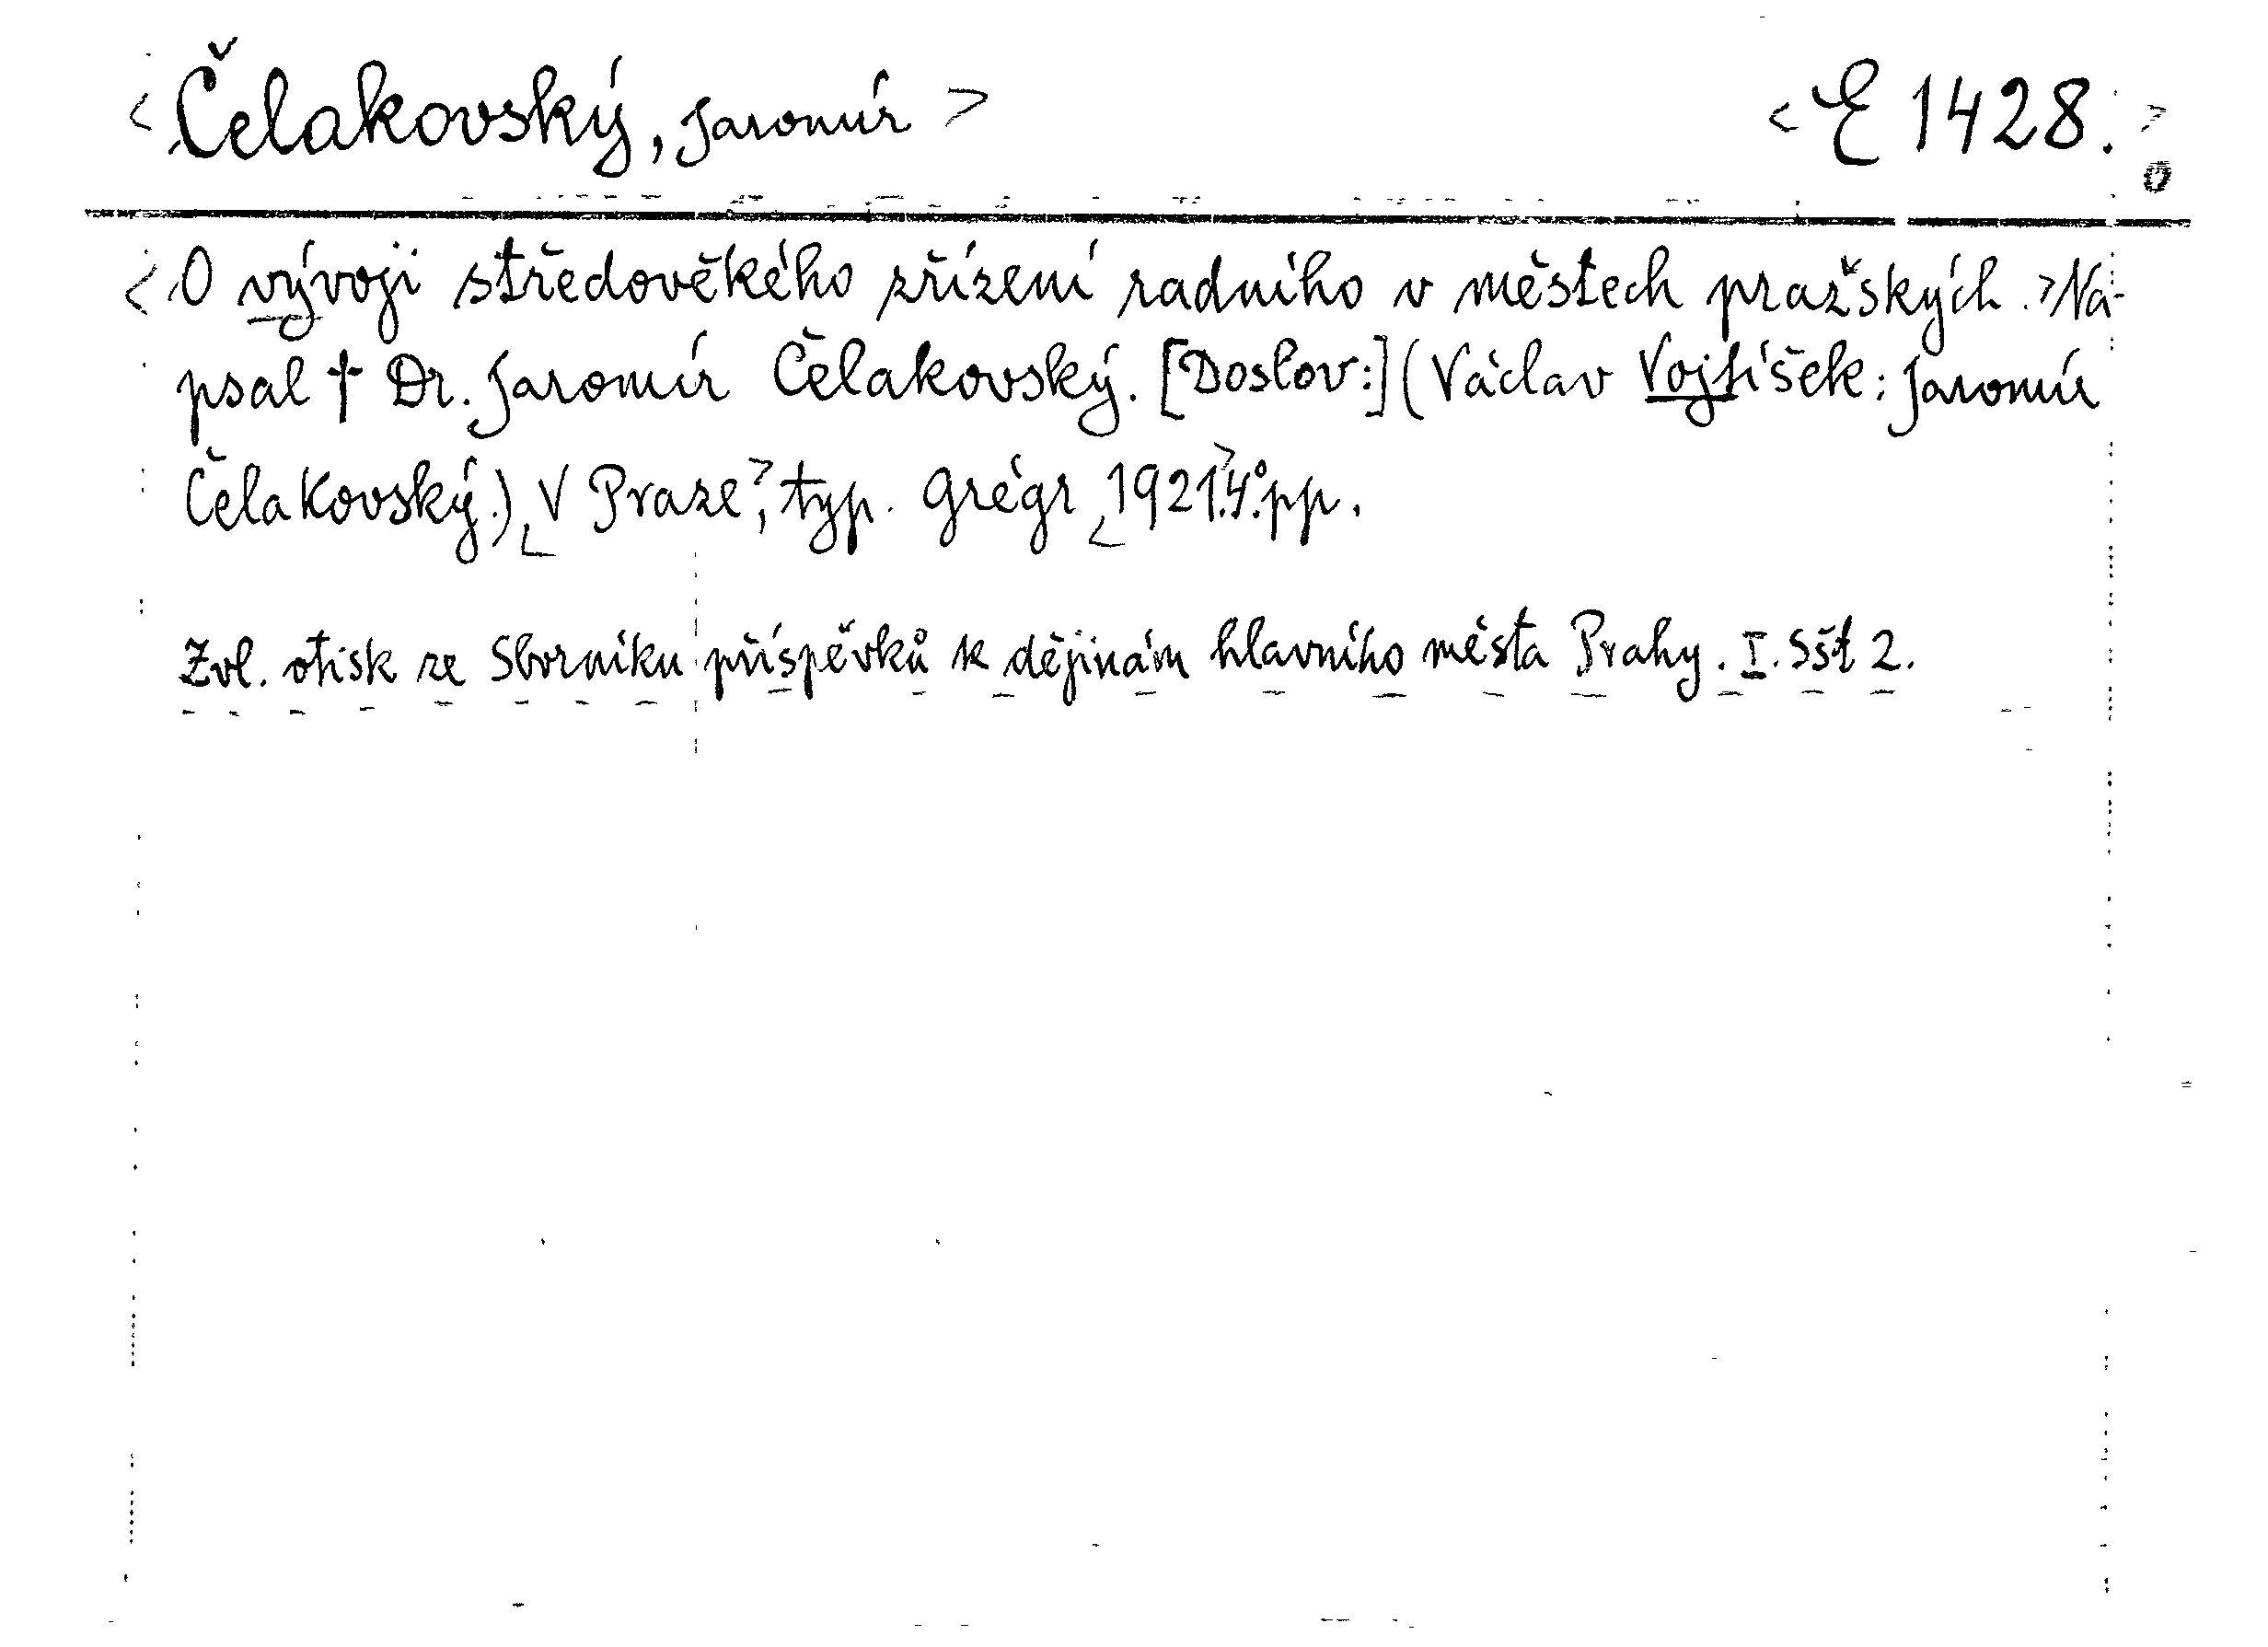 <Čelakovský, Jaromír> <E 1428.>
<O vývoji středověkého zřízení radního v městech pražských.> Na-
psal † Dr. Jaromír Čelakovský. [Doslov:] (Václav Vojtíšek: Jaromír
Čelakovský.) <V Praze>, typ. Grégr <1921>. 4°. pp.
Zvl. otisk ze Sborníku příspěvků k dějinám hlavního města Prahy. I. Sšt 2.